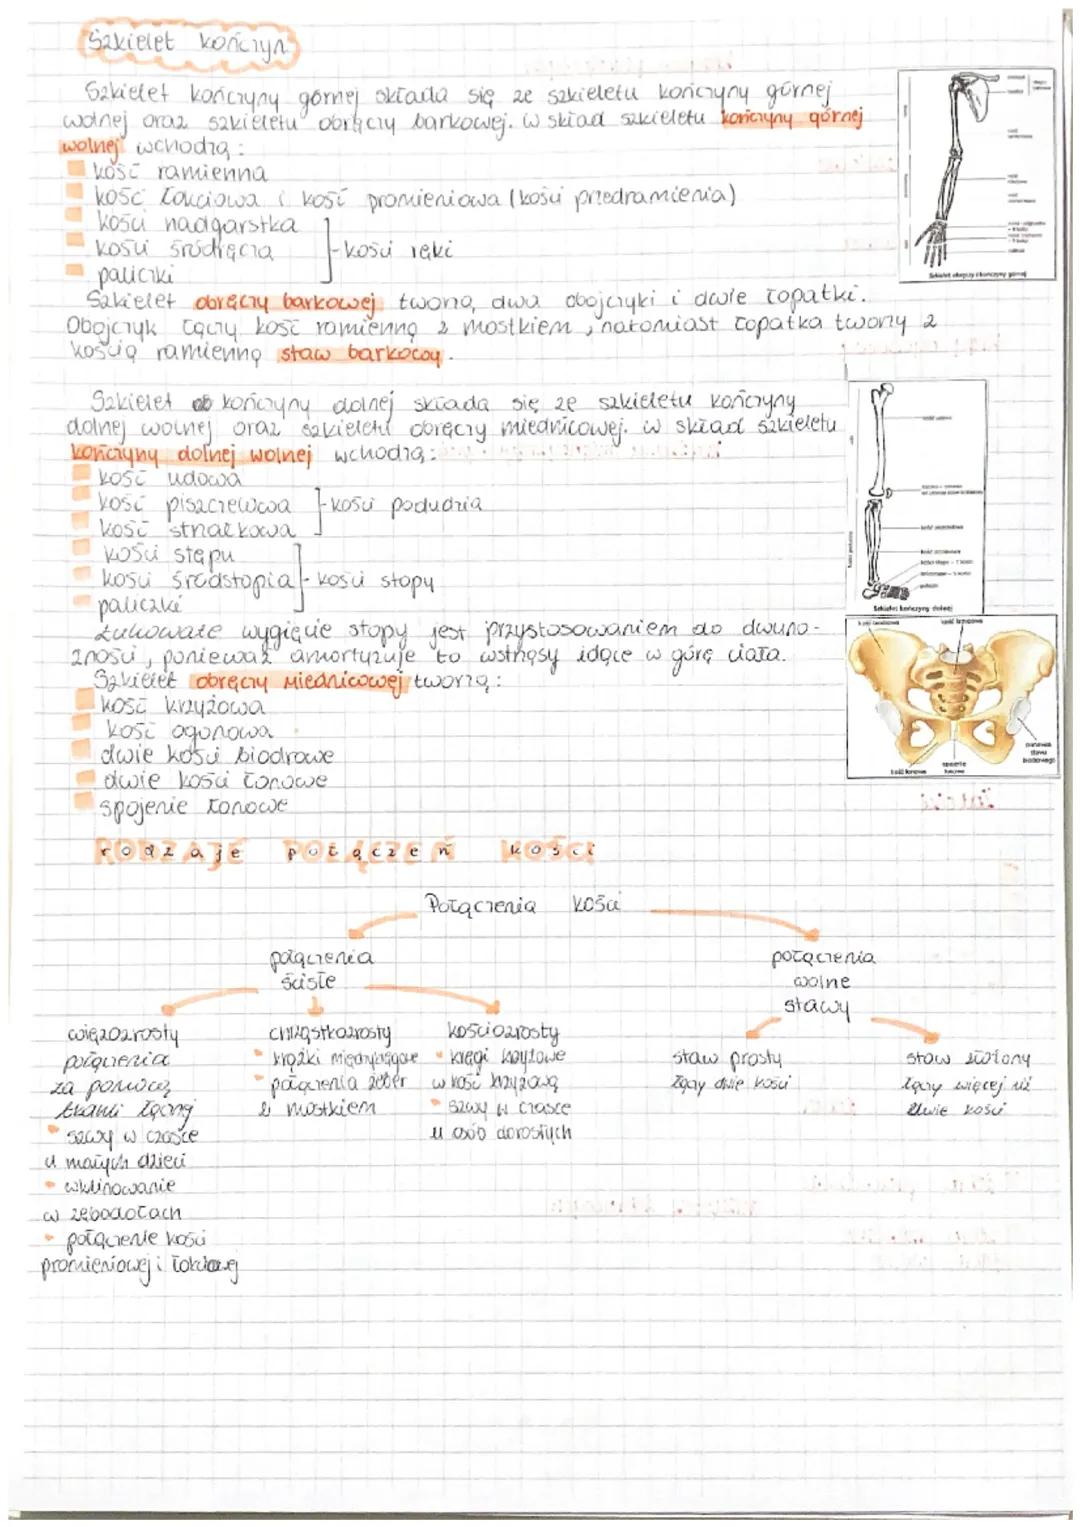 Szkielet kończyn
Szkielet kończyny górnej składa się ze szkieletu kończyny górnej
wolnej oraz szkieletu obręczy barkowej. W skład szkieletu kończyny górnej
wolnej wchodzą:
kość ramienna
kość łokciowa i kość promieniowa (kości przedramienia)
kości nadgarstka
kości śródręcza - kości ręki
paliczki
Szkielet obręczy barkowej tworzą dwa obojczyki i dwie łopatki.
Obojczyk łączy kość ramienną z mostkiem, natomiast łopatka tworzy z
kością ramienną staw barkowy.
Szkielet obręczy i kończyny górnej
Szkielet kończyny dolnej składa się ze szkieletu kończyny
dolnej wolnej oraz szkieletu obręczy miednicowej. W skład szkieletu
kończyny dolnej wolnej wchodzą:
kość udowa
kość piszczelowa - kości podudzia
kość strzałkowa
kości stępu
kości śródstopia - kości stopy
paliczki
Szkielet kończyny dolnej
Łukowate wygięcie stopy jest przystosowaniem do dwuno-
żności, ponieważ amortyzuje to wstrząsy idące w górę ciała.
Szkielet obręczy miednicowej tworzą:
kość krzyżowa
kość ogonowa
dwie kości biodrowe
dwie kości łonowe
spojenie łonowe
kość krzyżowa
kość łonowa
spojenie łonowe
panewka stawu biodrowego
RODZAJE POŁĄCZEŃ KOŚCI
rodzaje połączeń kości
Połączenia kości
połączenia ścisłe
połączenia wolne stawy
więzozrosty
połączenia
za pomocą
tkanki łącznej
szwy w czaszce
u małych dzieci
wklinowanie
w zębodołach
połączenie kości
promieniowej i łokciowej
chrząstkozrosty
krążki międzykręgowe
połączenia żeber
z mostkiem
kościozrosty
kręgi krzyżowe
w kość krzyżową
szwy w czaszce
u osób dorosłych
staw prosty
łączy dwie kości
staw złożony
łączy więcej niż
dwie kości